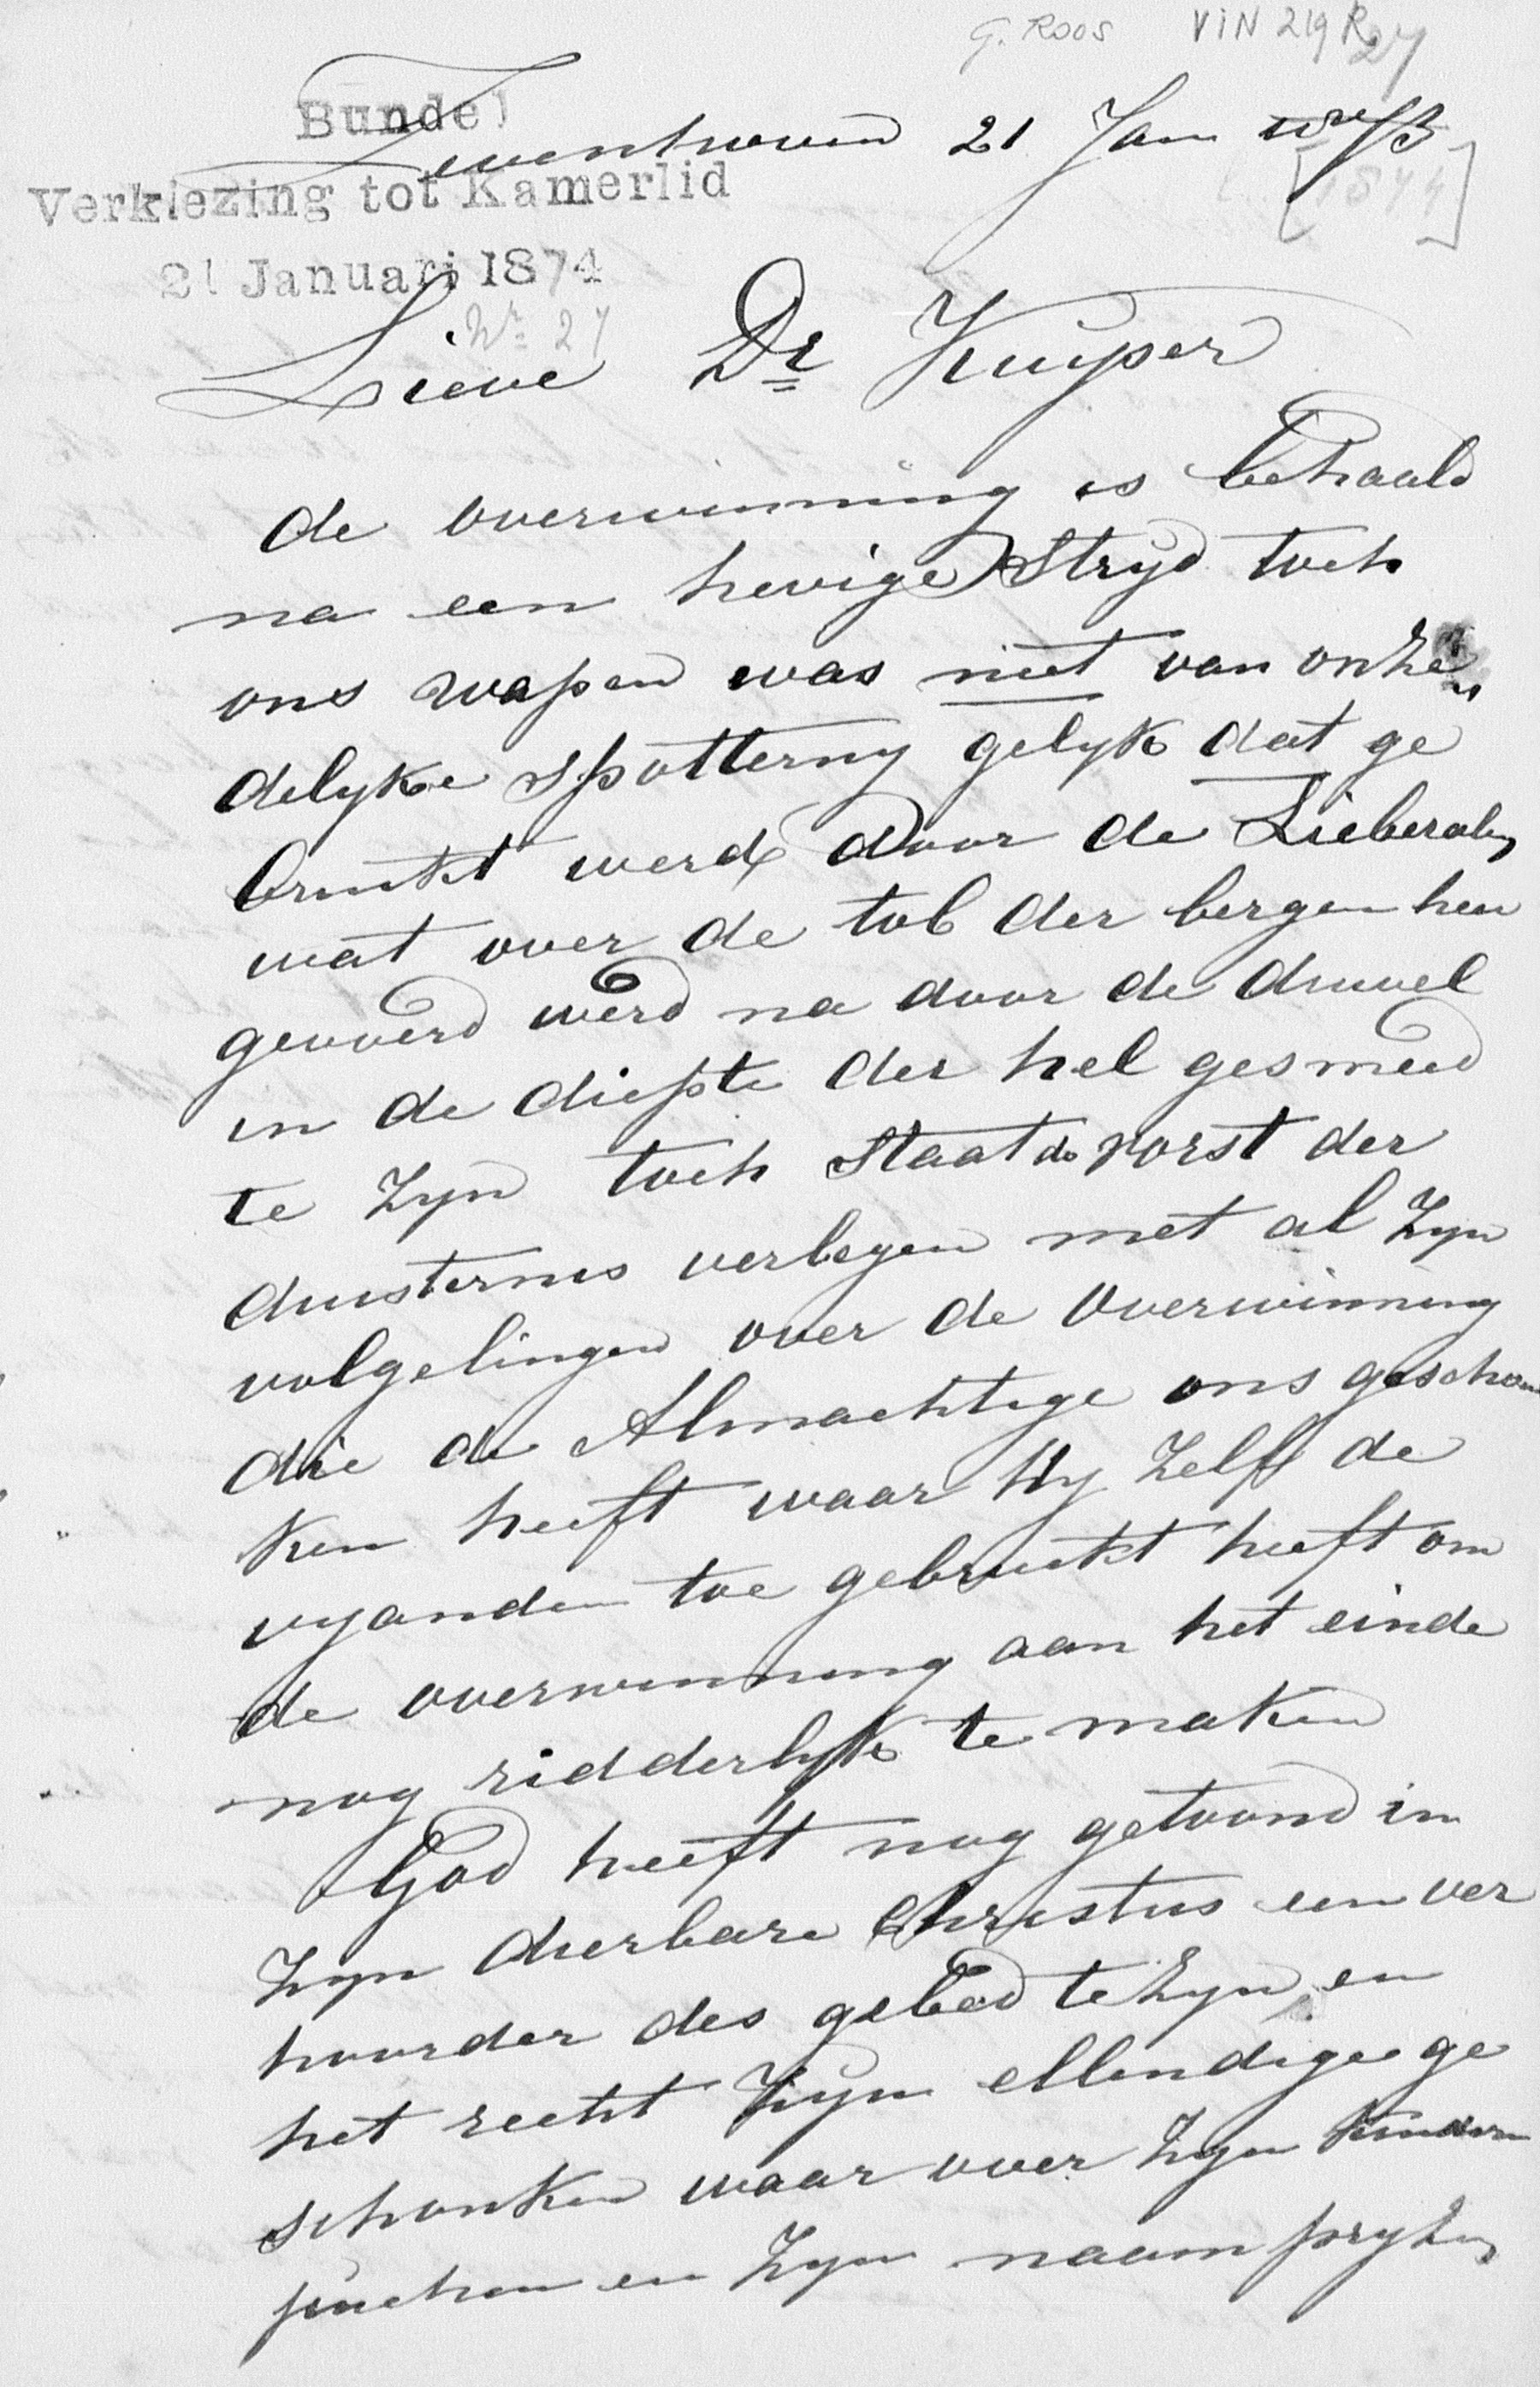 G. Roos VIN 219 R 27
Bundel
Zevenhoven 21 Jan
Verkiezing tot Kamerlid
[1874]
21 Januari 1874
Nr 27
Lieve Dr Kuyper
de overwinning is behaald
na een hevige Stryd toch
ons wapen was niet van onze
delyke spotterny gelyk dat ge
bruikt werd door de Lieberalen
wat over de tob der bergen hen
gevoerd werd na door de duivel
in de diepte der hel gesmeed
te zyn toch Staat de vorst der
duisternis verlegen met al zyn
volgelingen over de Overwinning
die de Almachtige ons geschon
ken heeft waar Hy zelf de
vyanden toe gebruikt heeft om
de overwinning aan het einde
nog ridderlyk te maken
God heeft nog getoond in
zyn dierbare Christus een ver
hoorder des gebed te zyn en
het recht zyn ellendige ge
schonken waar over zyn kinderen
juichen en zyn naam pryzen